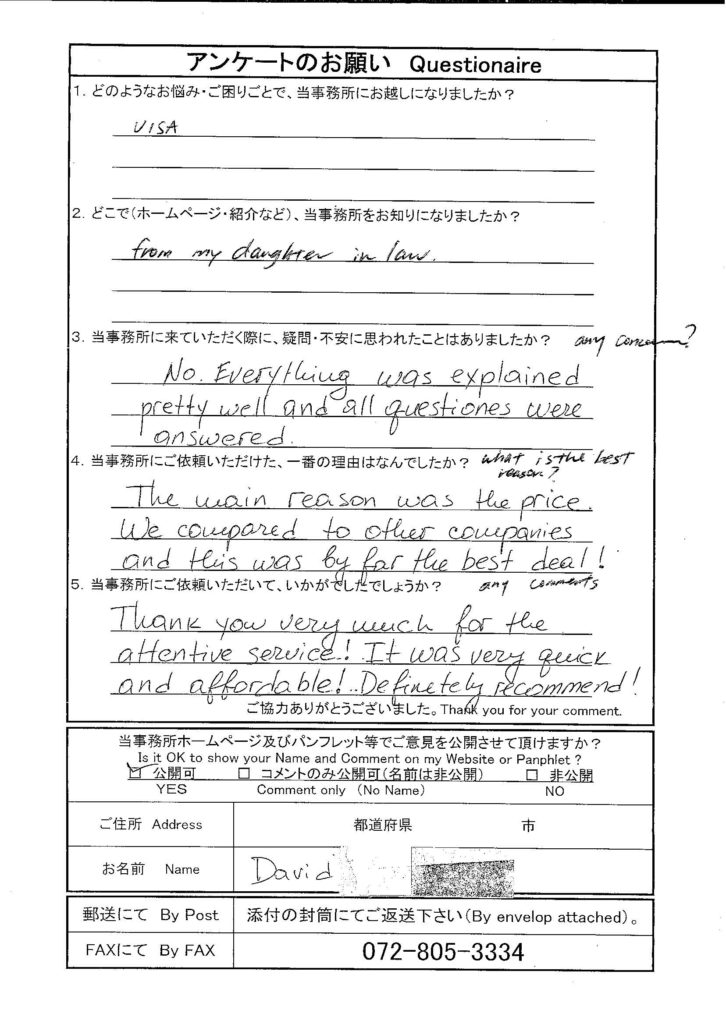 アンケートのお願い Questionaire
1. どのようなお悩み・ご困りごとで、当事務所にお越しになりましたか？
VISA
2. どこで(ホームページ・紹介など)、当事務所をお知りになりましたか？
from my daughter in law.
3. 当事務所に来ていただく際に、疑問・不安に思われたことはありましたか？ any concern?
No. Everything was explained
pretty well and all questiones were
answered.
4. 当事務所にご依頼いただけた、一番の理由はなんでしたか？ what is the best
reason?
The main reason was the price.
We compared to other companies
and this was by far the best deal!
5. 当事務所にご依頼いただいて、いかがでしたでしょうか？ any comments
Thank you very much for the
attentive service! It was very quick
and affordable! Definetely recommend!
ご協力ありがとうございました。Thank you for your comment.
当事務所ホームページ及びパンフレット等でご意見を公開させて頂けますか？
Is it OK to show your Name and Comment on my Website or Panphlet ?
☑ 公開可 □ コメントのみ公開可(名前は非公開) □ 非公開
YES Comment only (No Name) NO
ご住所 Address 都道府県 市
お名前 Name David
郵送にて By Post 添付の封筒にてご返送下さい(By envelop attached)。
FAXにて By FAX 072-805-3334